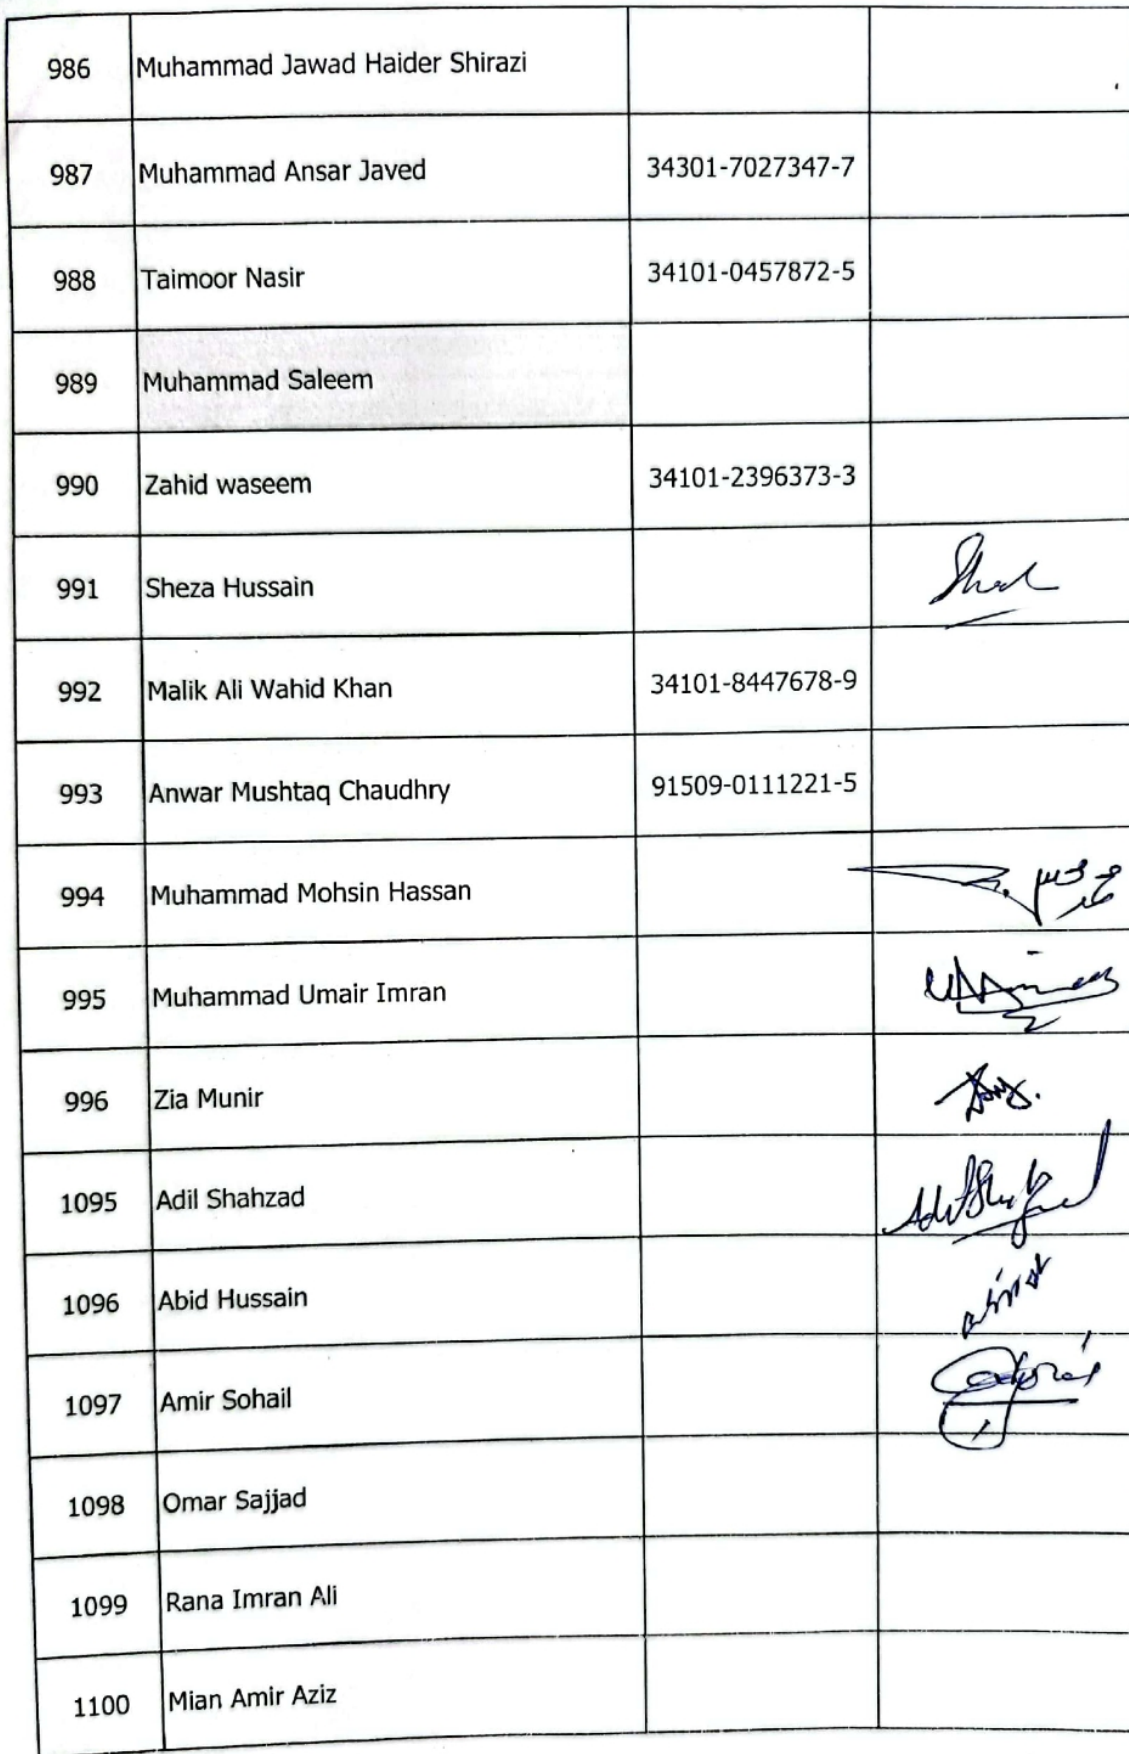 986 Muhammad Jawad Haider Shirazi
987 Muhammad Ansar Javed 34301-7027347-7
988 Taimoor Nasir 34101-0457872-5
989 Muhammad Saleem
990 Zahid waseem 34101-2396373-3
991 Sheza Hussain
992 Malik Ali Wahid Khan 34101-8447678-9
993 Anwar Mushtaq Chaudhry 91509-0111221-5
994 Muhammad Mohsin Hassan
995 Muhammad Umair Imran
996 Zia Munir
1095 Adil Shahzad
1096 Abid Hussain
1097 Amir Sohail
1098 Omar Sajjad
1099 Rana Imran Ali
1100 Mian Amir Aziz